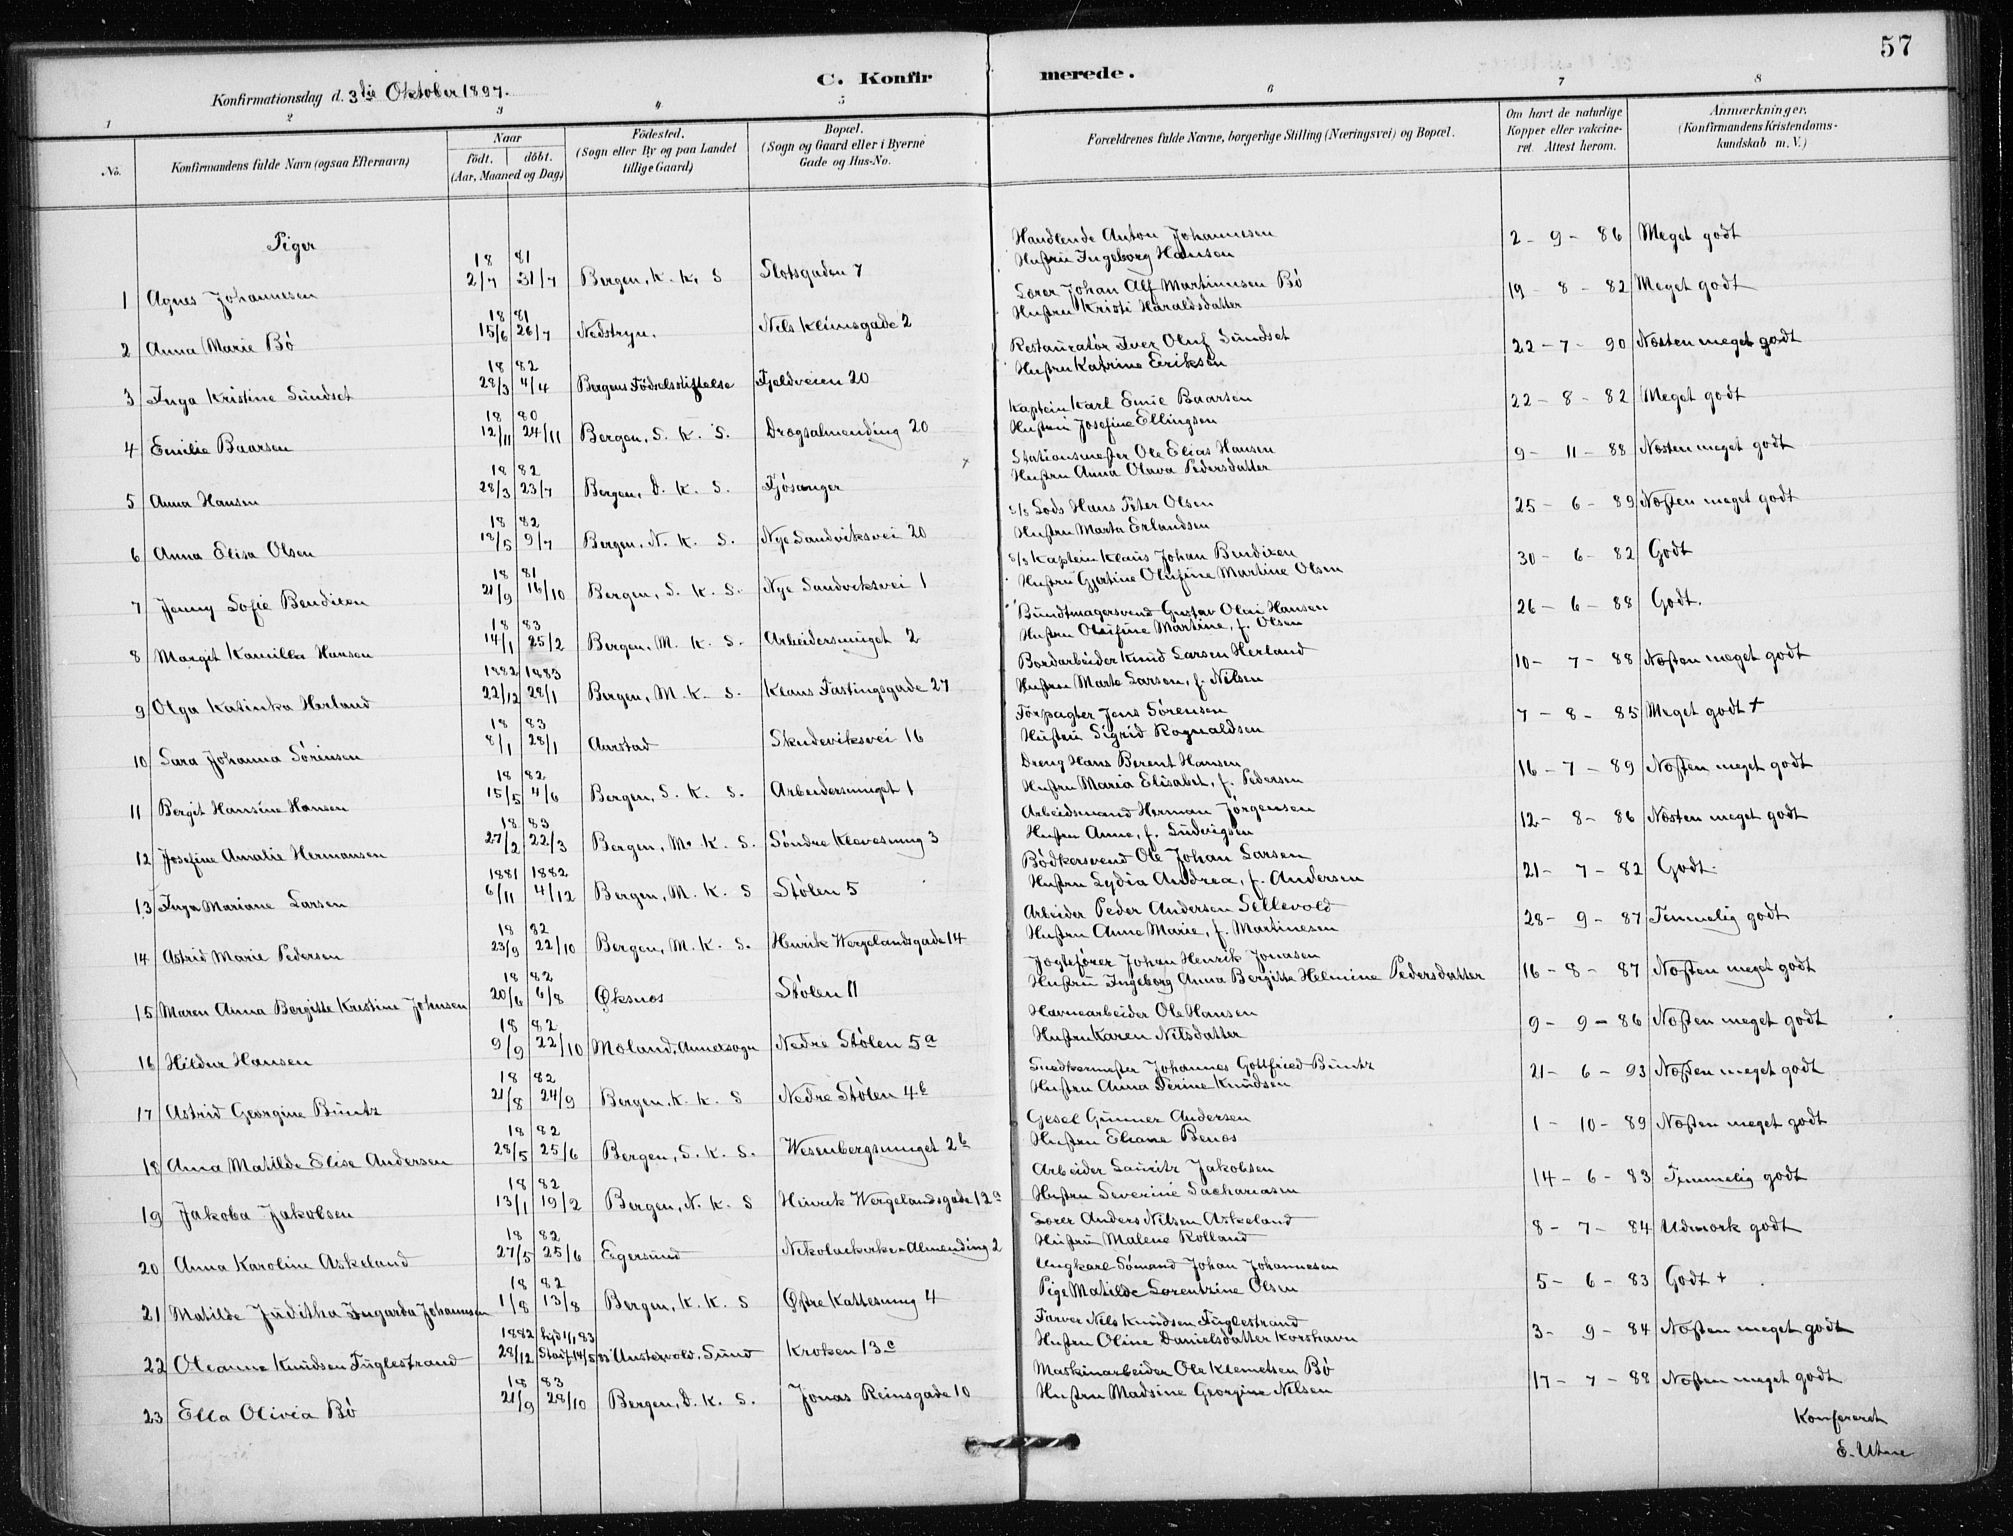 57
C. Konfirmerede.
Konfirmationsdag d. 3die Oktober 1897.
1 2 3 4 5 6 7 8
No. Konfirmandens fulde Navn (ogsaa Efternavn) Naar födt. döbt. (Aar, Maaned og Dag) Födested. (Sogn eller By og paa Landet tillige Gaard) Bopæl. (Sogn og Gaard eller i Byerne Gade og Hus-No. Forældrenes fulde Navne, borgerlige Stilling (Næringsvei) og Bopæl. Om havt de naturlige Kopper eller vakcineret. Attest herom. Anmærkninger. (Konfirmandens Kristendomskundskab m. V.)
Piger
1 Agnes Johannesen 1881 2/7 31/7 Bergen, K. K. S Slotsgaden 7 Handlende Anton Johannesen Hustru Ingeborg Hansen 2-9-86 Meget godt
2 Anna Marie Bö 1881 15/6 26/7 Nedstryn. Nils Klimsgade 2 Lærer Johan Alf Martinusen Bö Hustru Kristi Haraldsdatter 19-8-82 Meget godt
3 Inga Kristine Sundset 1882 28/3 4/4 Bergens Födselsstiftelse Fjeldveien 20 Restauratör Iver Oluf Sundset Hustru Katrine Eriksen 22-7-90 Næsten meget godt
4 Emilie Baarsen 1880 12/11 24/11 Bergen, S. K. S. Dregsalmending 20 Kaptein Karl Emil Baarsen Hustru Josefine Ellingsen 22-8-82 Meget godt
5 Anna Hansen 1882 28/3 23/7 Bergen, D. K. S. Fjösanger Stationsmester Ole Elias Hansen Hustru Anna Olava Pedersdatter 9-11-88 Næsten meget godt
6 Anna Elisa Olsen 1882 12/5 9/7 Bergen, N. K. S. Nye Sandviksvei 20 Lods Hans Peter Olsen Hustru Marta Erlandsen 25-6-89 Næsten meget godt
7 Jenny Sofie Bendixen 1881 21/9 16/10 Bergen, S. K. S. Nye Sandviksvei 1 Kaptein Klaus Johan Bendixen Hustru Gjertine Olufine Martine Olsen 30-6-82 Godt
8 Margit Kamilla Hansen 1883 14/1 25/2 Bergen. M. K. S. Arbeidersmuget 2 Bundtmagersvend Gustav Olai Hansen Hustru Olufine Martine, f. Olsen 26-6-88 Godt.
9 Olga Katinka Herland 1882 1883 22/12 28/1 Bergen, M. K. S. Klaus Fastingsgade 27 Bordarbeider Knud Larsen Herland Hustru Marta Larsen, f. Nilsen 10-7-88 Næsten meget godt
10 Sara Johanna Sörensen 1883 8/1 28/1 Aarstad Skudeviksvei 16 Forpagter Jens Sörensen Hustru Sigrid Ragnaldsen 7-8-85 Meget godt +
11 Bergit Hansine Hansen 1882 15/5 4/6 Bergen, S. K. S. Arbeidersmuget 1 Dreng Hans Berent Hansen Hustru Maria Elisabet, f. Pedersen 16-7-89 Næsten meget godt
12 Josefine Amalie Hermansen 1883 27/2 22/3 Bergen, M. K. S. Söndre Klevesmug 3 Arbeidsmand Herman Jörgensen Hustru Anne, f. Ludvigsen 12-8-86 Næsten meget godt
13 Inga Mariane Larsen 1881 1882 6/11 4/12 Bergen, M. K. S Stölen 5 Bödkersvend Ole Johan Larsen Hustru Lydia Andrea, f. Andersen 21-7-82 Godt.
14 Astrid Marie Pedersen 1882 23/9 22/10 Bergen, M. K. S. Henrik Wergelandsgade 14 Arbeider Peder Andersen Sellevold Hustru Anne Marie, f. Martinesen 28-9-87 Temmelig godt
15 Maren Anna Bergitte Kristine Johnsen 1882 20/6 6/8 Øksnes Stölen 11 Jægtefører Johan Henrik Jonasen Hustru Ingeborg Anna Bergitte Helmine Pedersdatter 16-8-87 Næsten meget godt
16 Hildur Hansen 1882 9/9 22/10 Moland, Annexsogn Nedre Stölen 5a Havnearbeider Ole Hansen Hustru Karen Nilsdatter 9-9-86 Næsten meget godt
17 Astrid Georgine Buntz 1882 21/8 24/9 Bergen, K. K. S Nedre Stölen 4b Snedkermester Johannes Gottfried Buntz Hustru Anna Perine Knudsen 21-6-93 Næsten meget godt
18 Anna Matilde Elise Andersen 1882 28/5 25/6 Bergen, S. K. S. Wesenbergsmuget 2b Gesel Gunner Andersen Hustru Eliane Benos 1-10-89 Næsten meget godt
19 Jakoba Jakobsen 1882 13/1 19/2 Bergen, N. K. S Heinrik Wergelandsgade 12a Arbeider Lauritz Jakobsen Hustru Severine Sachariasen 14-6-83 Temmelig godt
20 Anna Karoline Askeland 1882 27/5 25/6 Egersund Nikolaikirke-Almending 2 Lærer Anders Nilsen Askeland Hustru Malene Rolland 8-7-84 Udmerk godt
21 Matilde Juditha Ingarda Johannesen 1882 1/8 13/8 Bergen, K. K. S Østre Kattesmug 4 Ungkarl Sömand Johan Johannesen Pige Matilde Lorentzine Olsen 5-6-83 Godt +
22 Oleanna Knudsen Fuglestrand 1882 28/12 hjd 1/1 83 Stadf. 14/5 83 Austevold, Sund Kroken 13c Farver Nils Knudsen Fuglestrand Hustru Oline Danielsdatter Korshavn 3-9-84 Næsten meget godt
23 Ella Olivia Bö 1883 21/9 28/10 Bergen, D. K. S. Jonas Reinsgade 10 Maskinarbeider Ole Klemetsen Bö Hustru Madsine Georgine Nilsen 17-7-88 Næsten meget godt
Konfereret
E. Utne